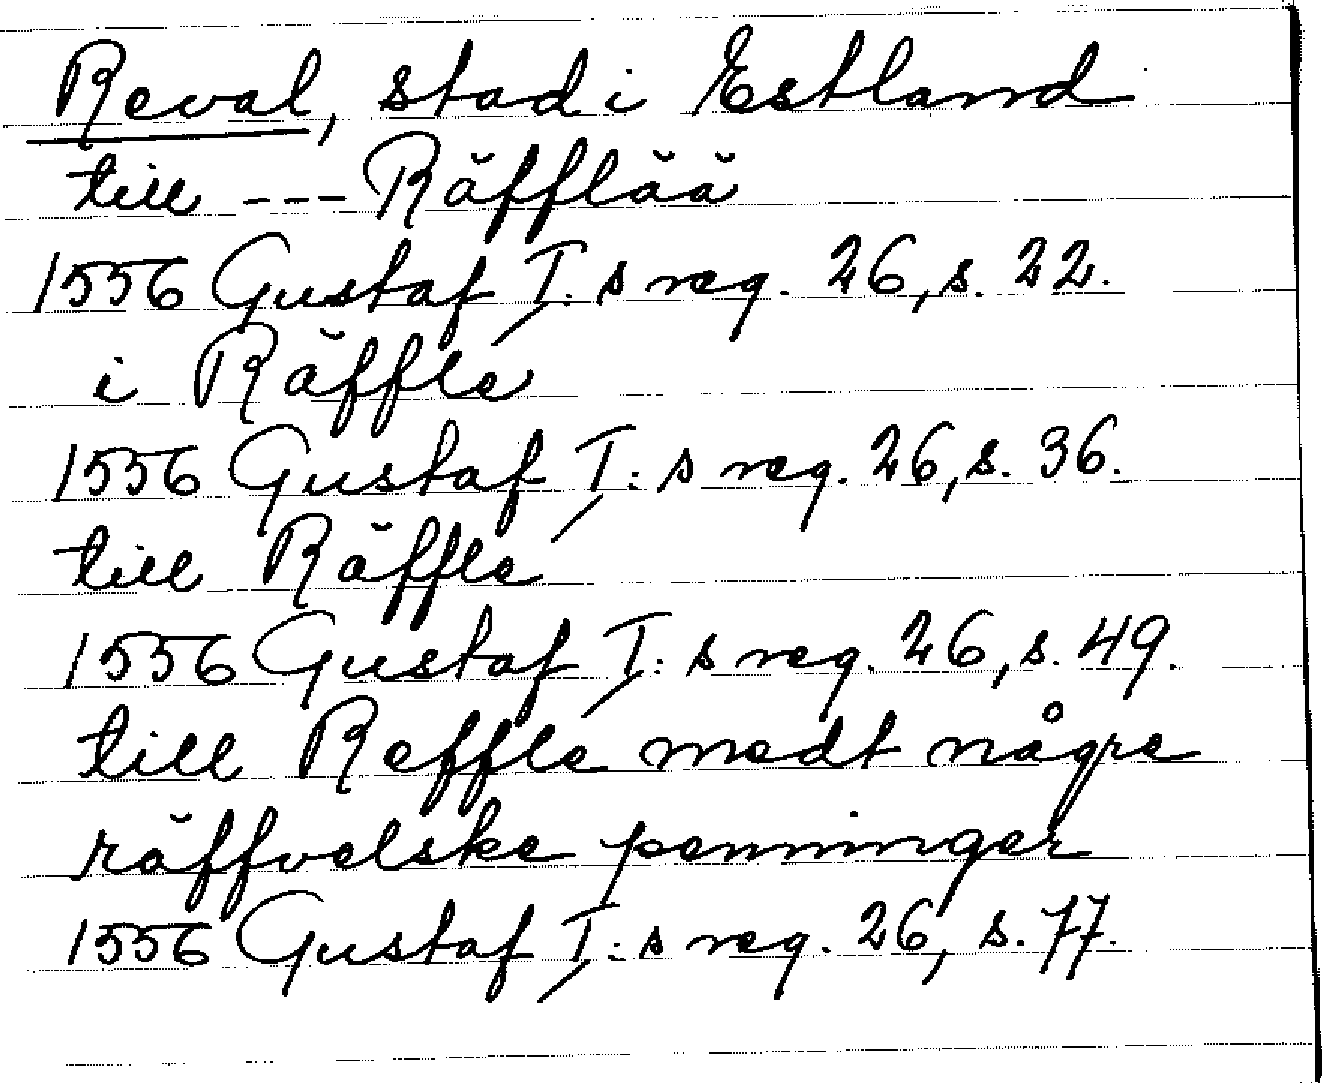 Reval, stad i Estland
till --- Räfflää
1556 Gustaf I:s reg. 26, s. 22.
i Räffle
1556 Gustaf I:s reg. 26, s. 36.
till Räffle
1556 Gustaf I:s reg. 26, s. 49.
till Reffle medt någre
räffvelske penninger
1556 Gustaf I:s reg. 26, s. 77.